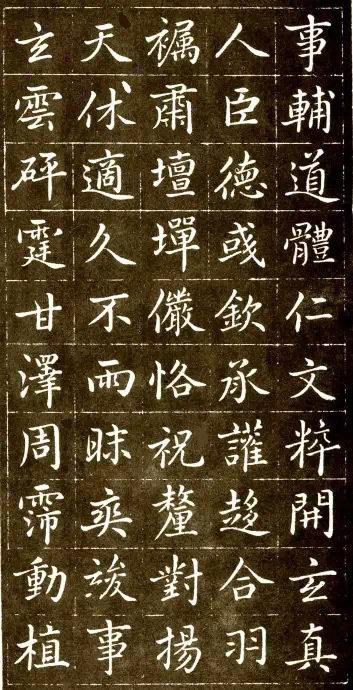 事輔道體仁文粹開玄真
人臣德彧欽承讙趍合羽
襵肅壇墠儼恪祝釐對揚
天休適久不雨昧爽竣事
玄雲砰霆甘澤周霈動植